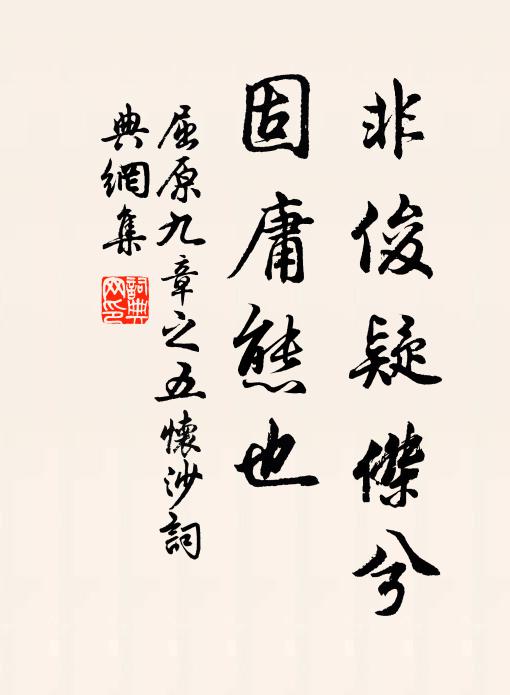 非俊疑傑兮
固庸態也
屈原九章之五懷沙詞
典網集
詞典
网印